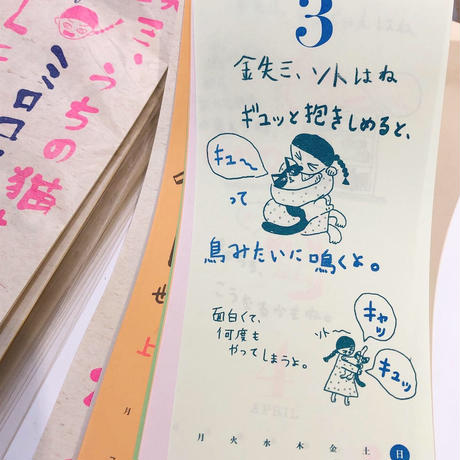 三、うちの猫
ミロコ
せ
上
月
3
鉄三、ソトはね
ギュッと抱きしめると、
キュ〜
って
鳥みたいに鳴くよ。
面白くて、
何度も
やってしまうよ。
ソト〜
キャッ
キュッ
月 火 水 木 金 土 日